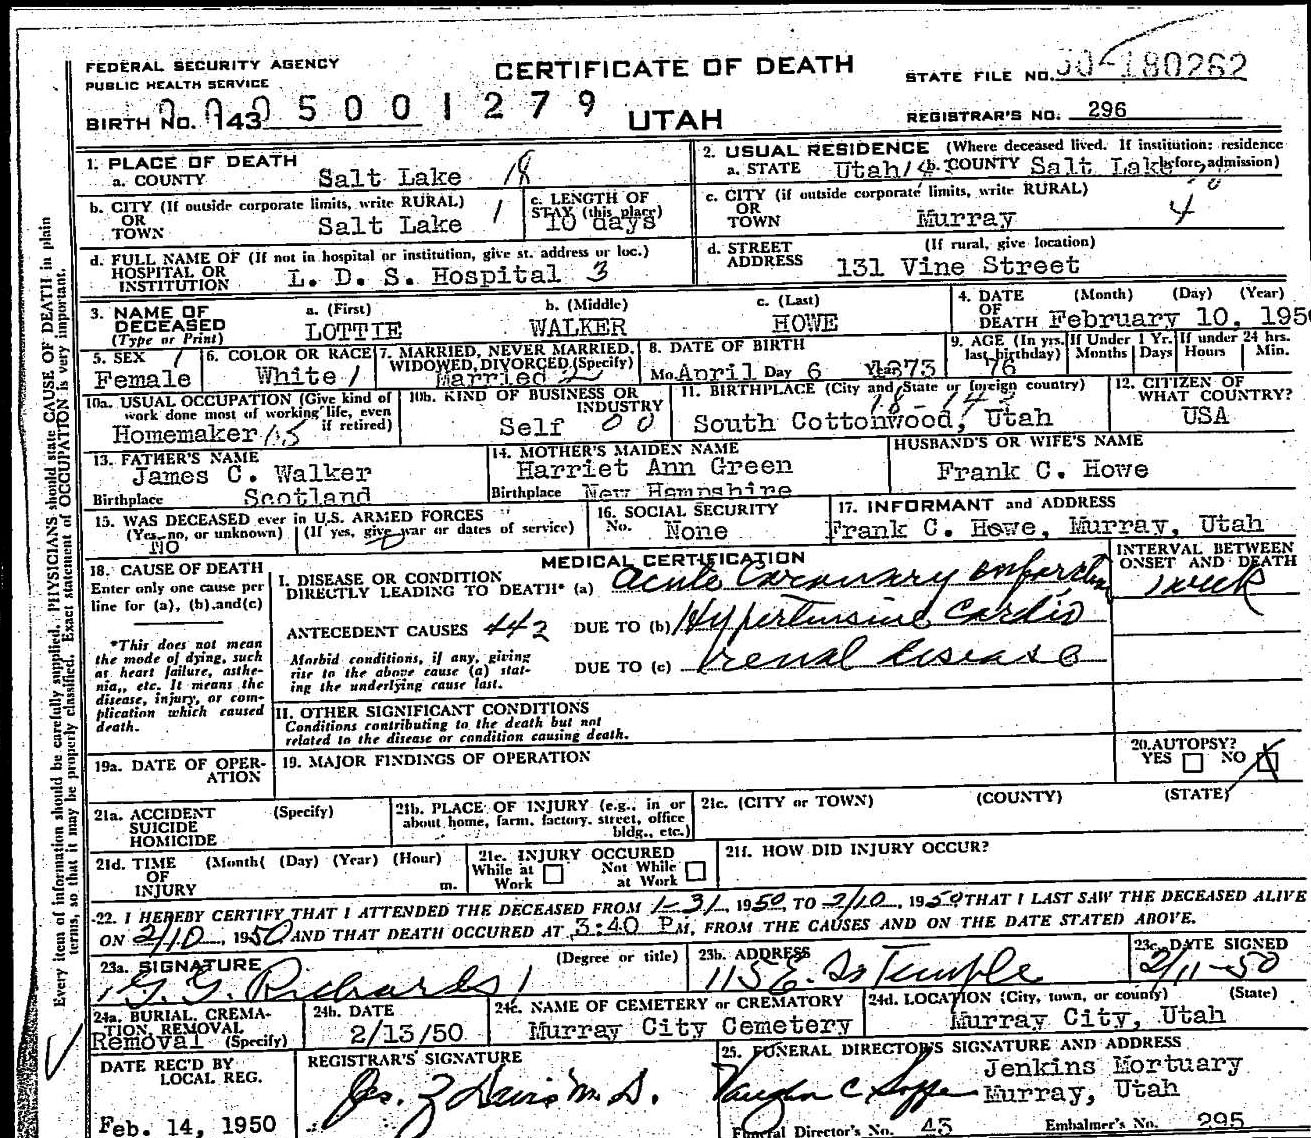 FEDERAL SECURITY AGENCY
PUBLIC HEALTH SERVICE
CERTIFICATE OF DEATH
STATE FILE NO. 180262
BIRTH NO. 143 5 0 0 1 2 7 9
UTAH
REGISTRAR'S NO. 296
1. PLACE OF DEATH
a. COUNTY Salt Lake 18
2. USUAL RESIDENCE (Where deceased lived. If institution: residence before admission)
a. STATE Utah b. COUNTY Salt Lake
b. CITY (If outside corporate limits, write RURAL)
OR
TOWN Salt Lake 1
c. LENGTH OF
STAY (this place)
10 days
c. CITY (if outside corporate limits, write RURAL)
OR
TOWN Murray 4
d. FULL NAME OF (If not in hospital or institution, give st. address or loc.)
HOSPITAL OR
INSTITUTION L. D. S. Hospital 3
d. STREET (If rural, give location)
ADDRESS 131 Vine Street
3. NAME OF
DECEASED
(Type or Print)
a. (First) b. (Middle) c. (Last)
LOTTIE WALKER HOWE
4. DATE (Month) (Day) (Year)
OF
DEATH February 10, 195
5. SEX
Female
6. COLOR OR RACE
White
7. MARRIED, NEVER MARRIED,
WIDOWED, DIVORCED (Specify)
Married
8. DATE OF BIRTH
Mo. April Day 6 Yr. 1873
9. AGE (In yrs. last birthday) 76
If Under 1 Yr. Months Days
If under 24 hrs. Hours Min.
10a. USUAL OCCUPATION (Give kind of
work done most of working life, even
if retired)
Homemaker
10b. KIND OF BUSINESS OR
INDUSTRY
Self 0 0
11. BIRTHPLACE (City and State or foreign country)
South Cottonwood, Utah
12. CITIZEN OF
WHAT COUNTRY?
USA
13. FATHER'S NAME
James C. Walker
Birthplace Scotland
14. MOTHER'S MAIDEN NAME
Harriet Ann Green
Birthplace New Hampshire
HUSBAND'S OR WIFE'S NAME
Frank C. Howe
15. WAS DECEASED ever in U.S. ARMED FORCES
(Yes, no, or unknown) (If yes, give war or dates of service)
NO
16. SOCIAL SECURITY
No. None
17. INFORMANT and ADDRESS
Frank C. Howe, Murray, Utah
18. CAUSE OF DEATH
Enter only one cause per
line for (a), (b).and(c)
*This does not mean
the mode of dying, such
as heart failure, asthe-
nia,, etc. It means the
disease, injury, or com-
plication which caused
death.
MEDICAL CERTIFICATION
INTERVAL BETWEEN
ONSET AND DEATH
I. DISEASE OR CONDITION
DIRECTLY LEADING TO DEATH* (a) Acute Coronary infarction 1 week
ANTECEDENT CAUSES 442 DUE TO (b) Hypertensive Cardio
Morbid conditions, if any, giving
rise to the above cause (a) stat-
ing the underlying cause last.
DUE TO (c) renal disease
II. OTHER SIGNIFICANT CONDITIONS
Conditions contributing to the death but not
related to the disease or condition causing death.
19a. DATE OF OPER-
ATION
19. MAJOR FINDINGS OF OPERATION
20. AUTOPSY?
YES NO X
21a. ACCIDENT (Specify)
SUICIDE
HOMICIDE
21b. PLACE OF INJURY (e.g., in or
about home, farm, factory, street, office
bldg., etc.)
21c. (CITY or TOWN) (COUNTY) (STATE)
21d. TIME (Month( (Day) (Year) (Hour)
OF
INJURY m.
21e. INJURY OCCURED
While at Work Not While at Work
21f. HOW DID INJURY OCCUR?
22. I HEREBY CERTIFY THAT I ATTENDED THE DECEASED FROM 1-31, 1950, TO 2/10, 1950 THAT I LAST SAW THE DECEASED ALIVE
ON 2/10, 1950 AND THAT DEATH OCCURED AT 3:40 PM, FROM THE CAUSES AND ON THE DATE STATED ABOVE.
23a. SIGNATURE (Degree or title)
G. G. Richards
23b. ADDRESS
115 E. So Temple
23c. DATE SIGNED
2/11-50
24a. BURIAL, CREMA-
TION, REMOVAL
Removal (Specify)
24b. DATE
2/13/50
24c. NAME OF CEMETERY or CREMATORY
Murray City Cemetery
24d. LOCATION (City, town, or county) (State)
Murray City, Utah
DATE REC'D BY
LOCAL REG.
Feb. 14, 1950
REGISTRAR'S SIGNATURE
Davis M. D.
25. FUNERAL DIRECTOR'S SIGNATURE AND ADDRESS
Vaughn C
Jenkins Mortuary
Murray, Utah
Funeral Director's No. 43 Embalmer's No. 295
Every item of information should be carefully supplied. PHYSICIANS should state CAUSE OF DEATH in plain
terms, so that it may be properly classified. Exact statement of OCCUPATION is very important.